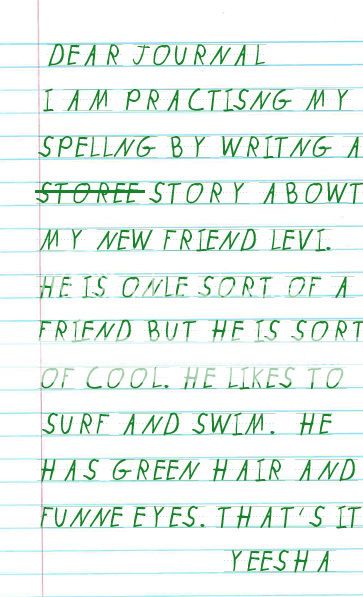 DEAR JOURNAL
I AM PRACTISNG MY
SPELLNG BY WRITNG A
STOREE STORY ABOWT
MY NEW FRIEND LEVI.
HE IS ONLE SORT OF A
FRIEND BUT HE IS SORT
OF COOL. HE LIKES TO
SURF AND SWIM. HE
HAS GREEN HAIR AND
FUNNE EYES. THAT'S IT
YEESHA